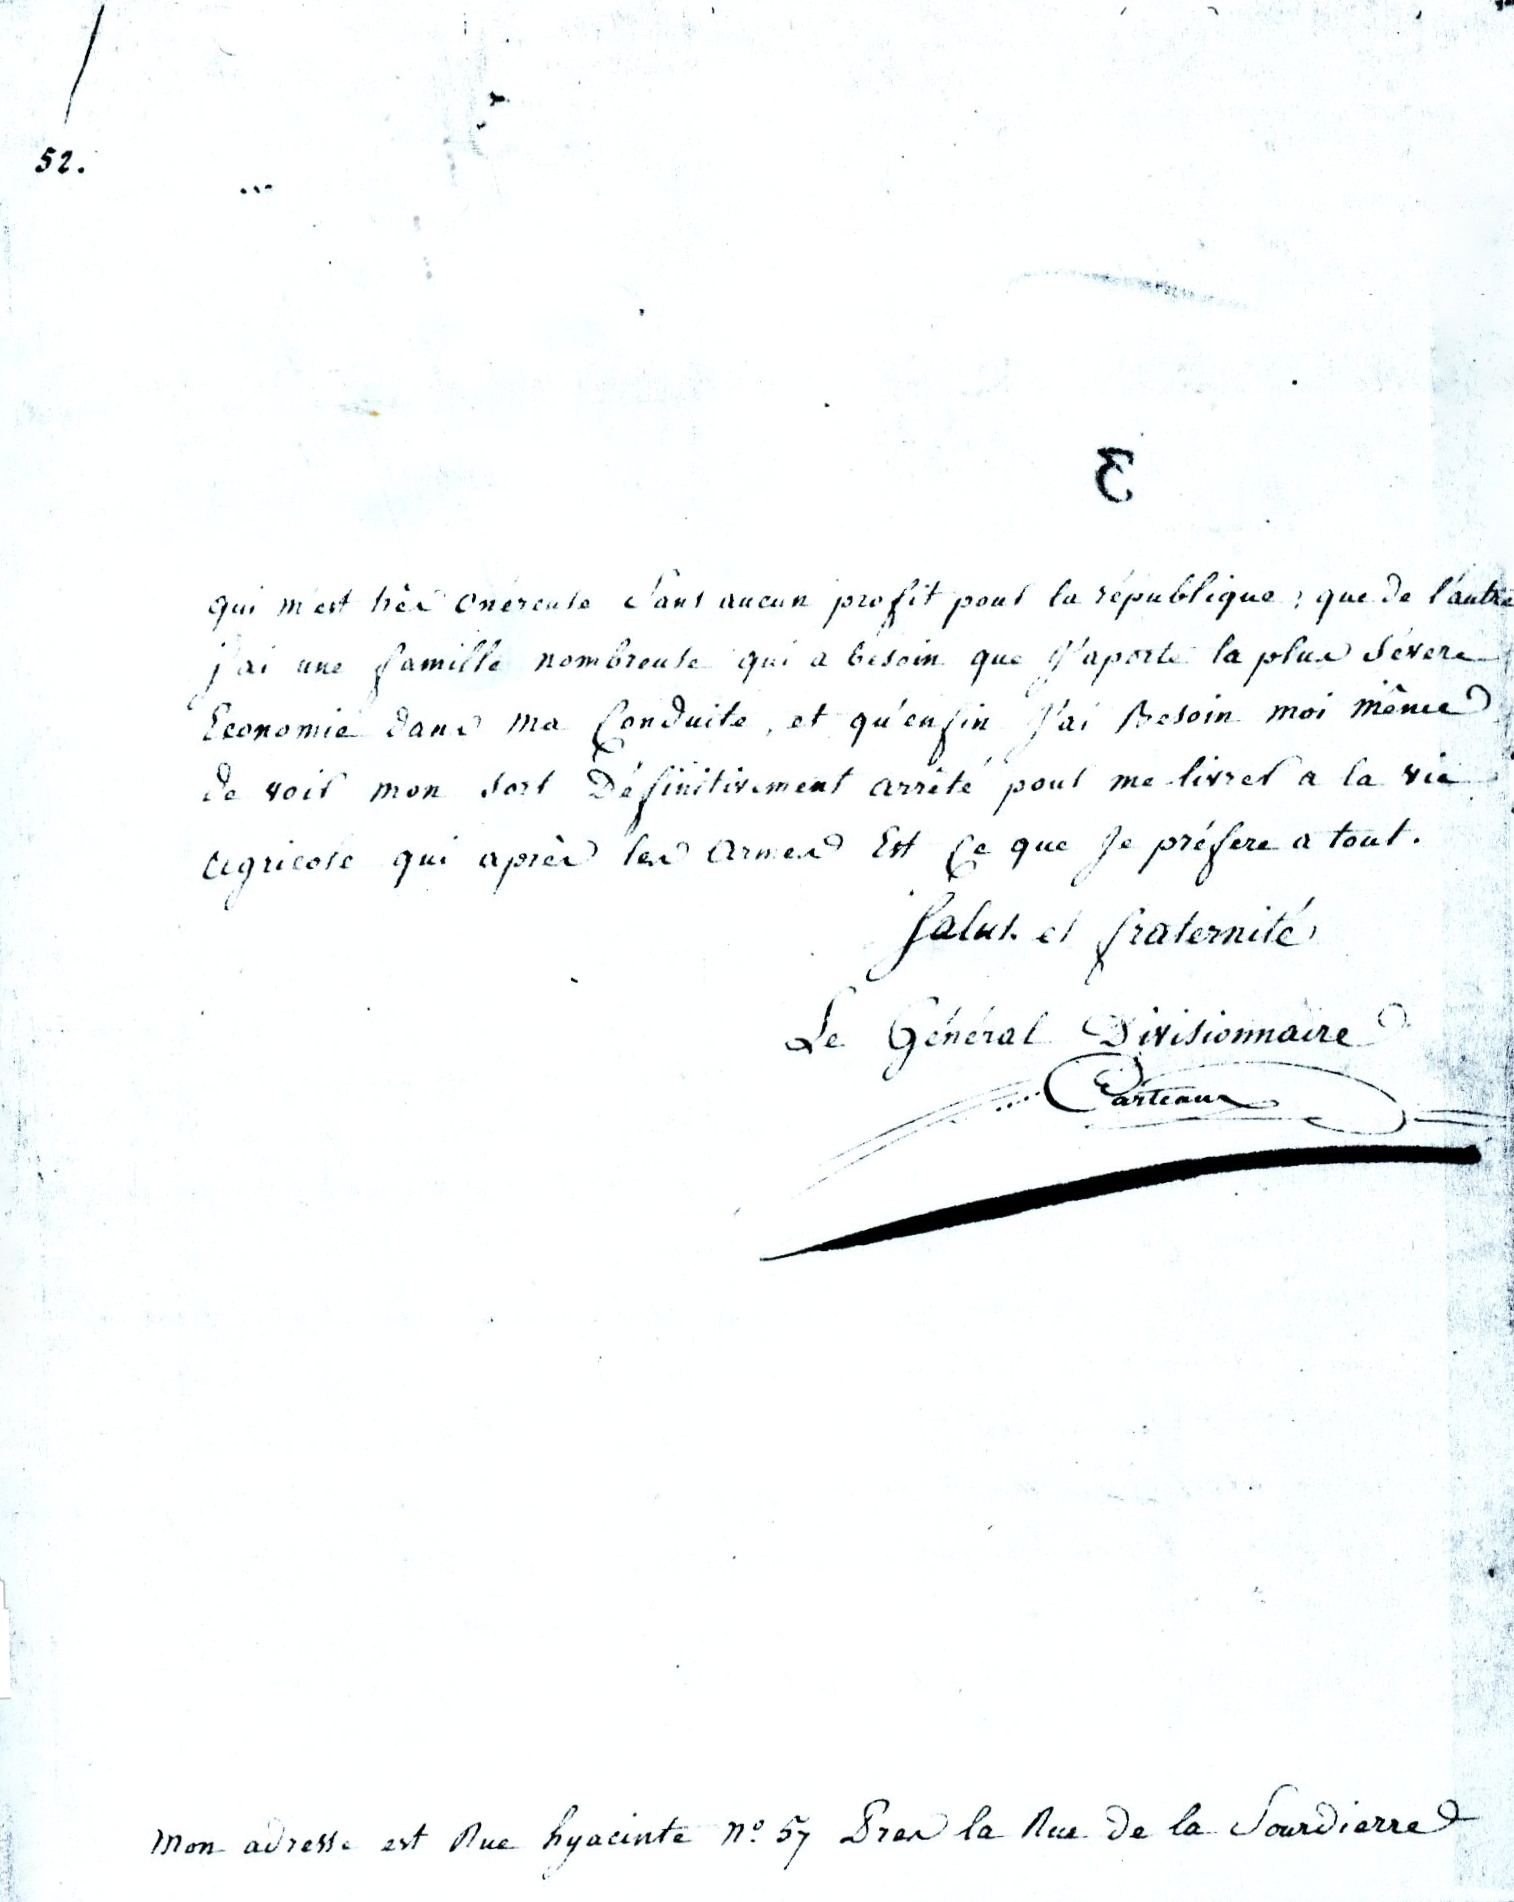 52.
qui m'est très onéreuse sans aucun profit pour la république; que de l'autre
j'ai une famille nombreuse qui a bésoin que J'aporte la plus sévere
Economie dans ma Conduite, et qu'enfin J'ai Besoin moi même
de voir mon sort Définitivement arrêté pour me livrer a la vie
agricole qui après les armes Est Ce que Je préfere a tout.
Salut et fraternité
Le Général Divisionnaire
Carteaux
mon adresse est Rue hyacinte n.o 57 Près la Rue de la Sourdierre